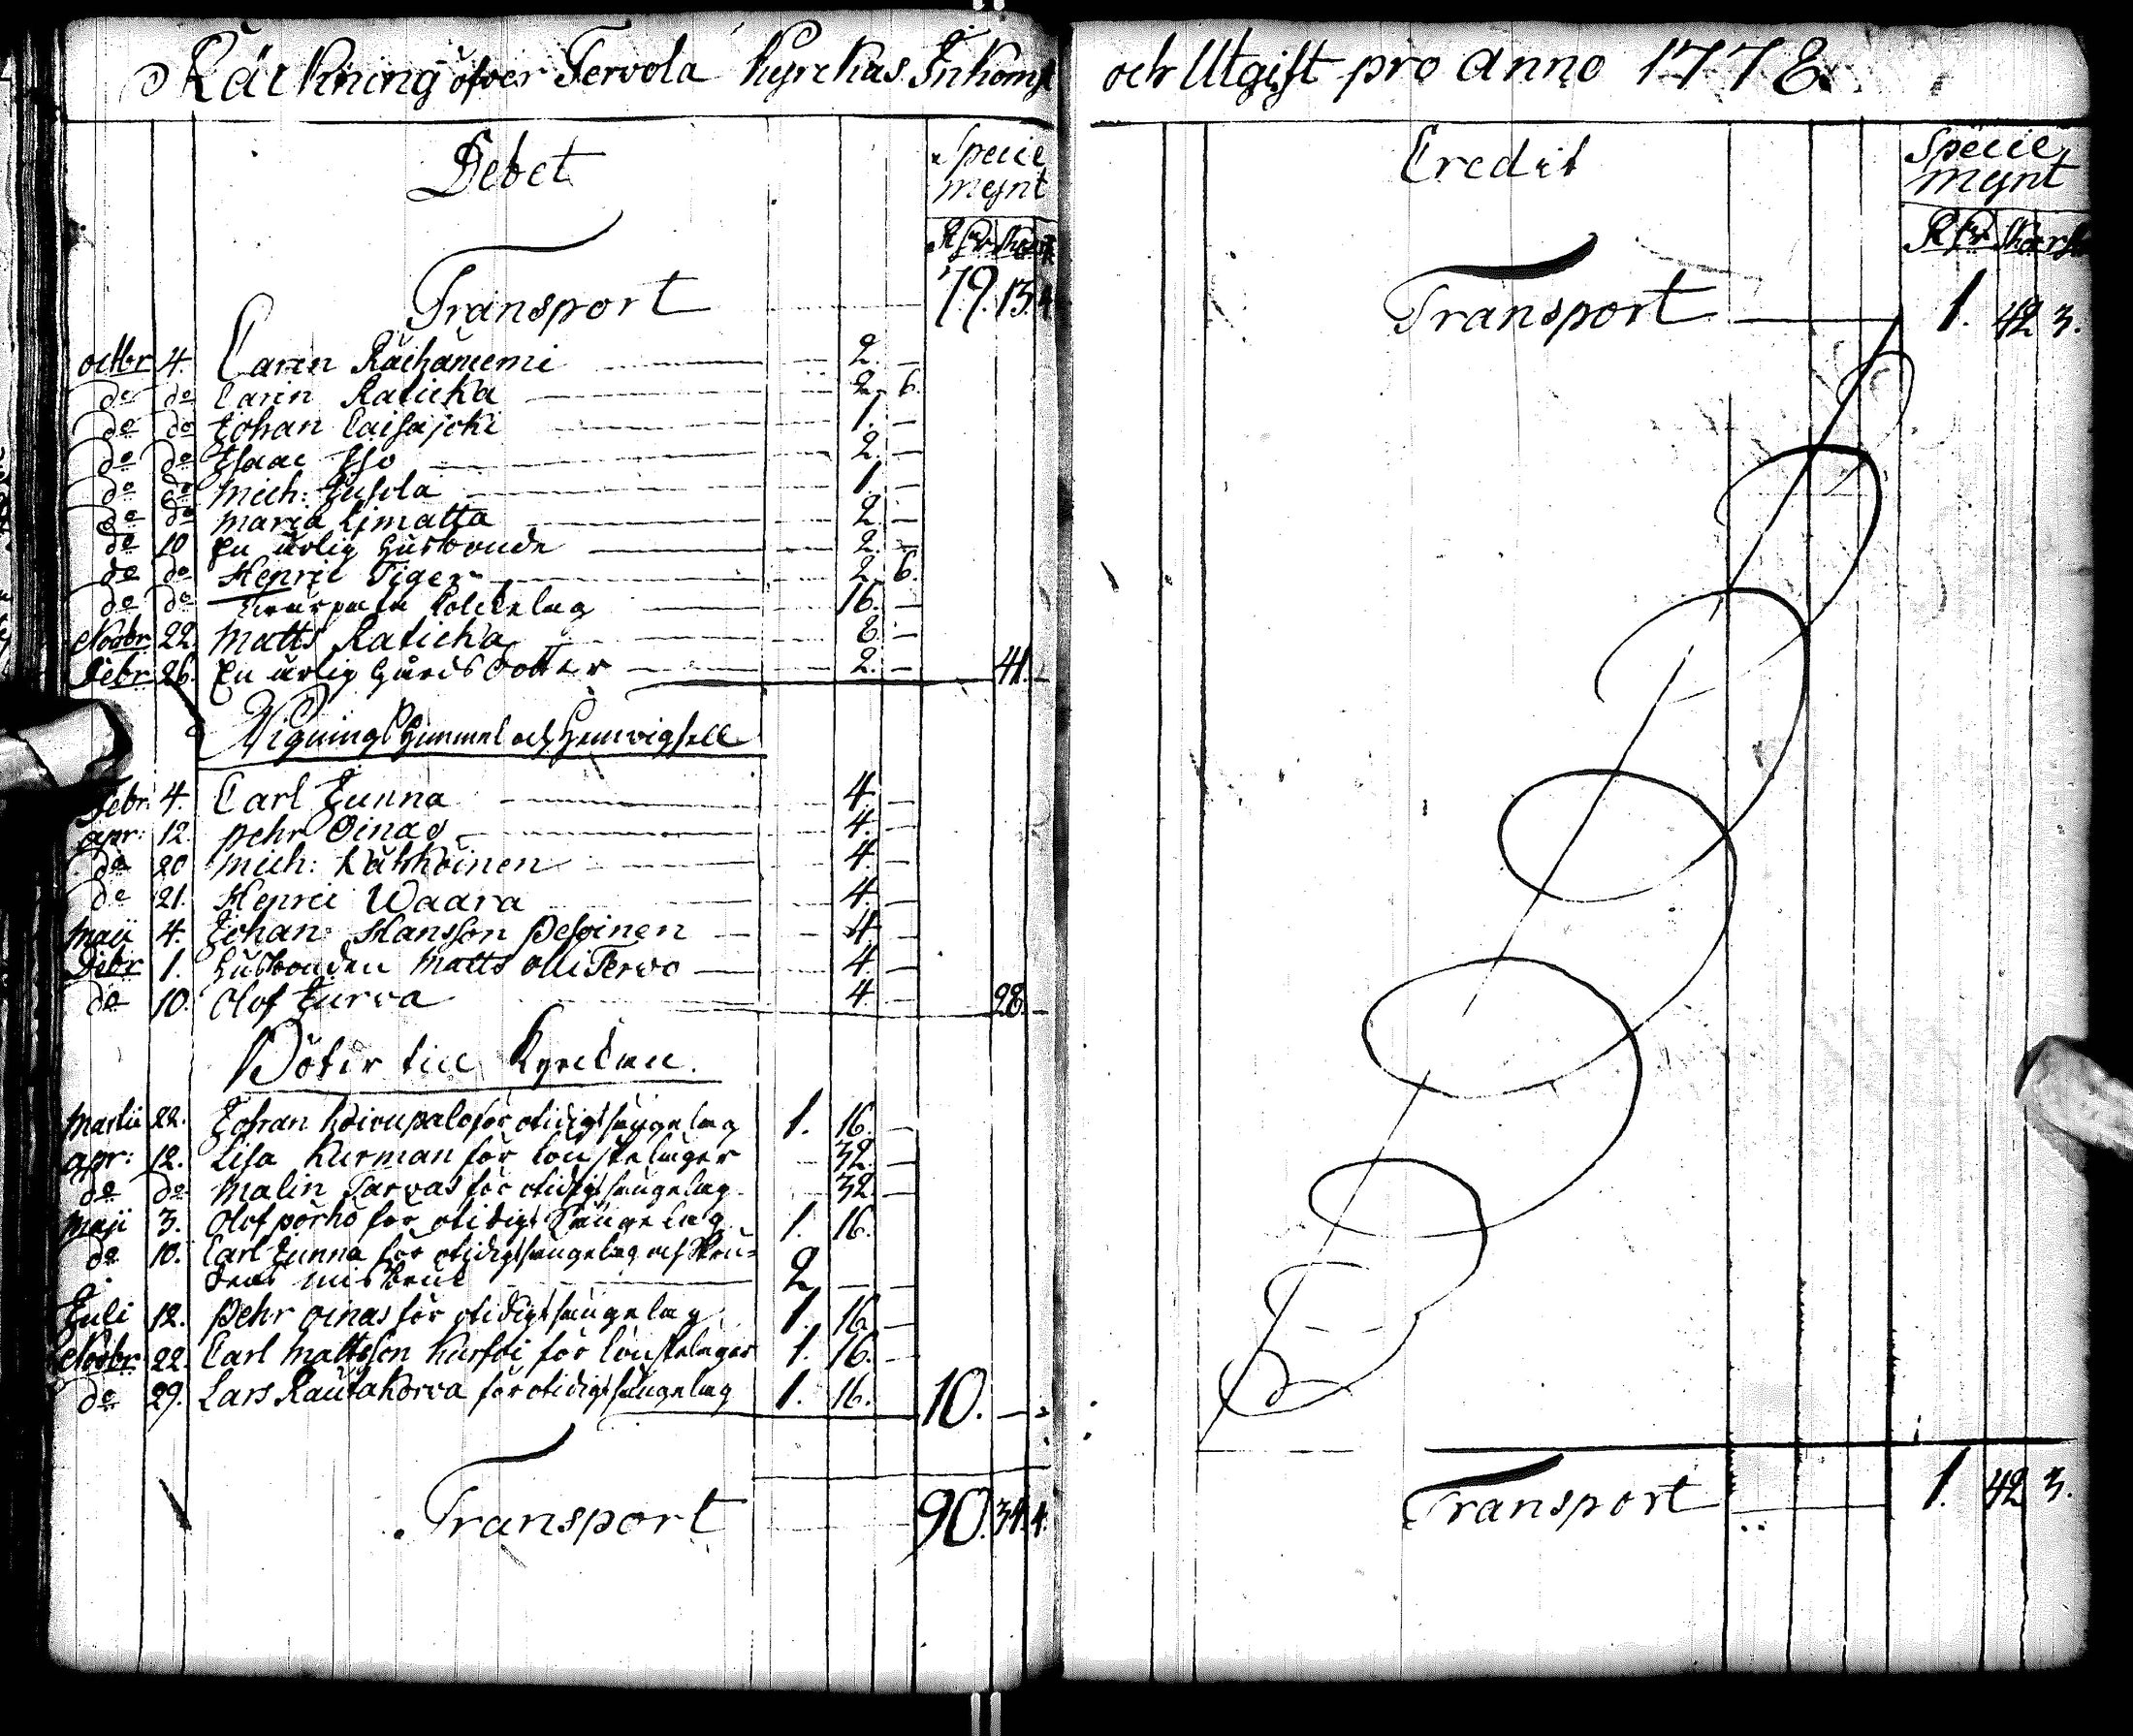 Räckning öfver Tervola Kyrckas Inkomst
Debet
Specie
mynt
Rdr Sk. rst
Transport 79. 13. 4.
octbr 4. Carin Räihäniemi 2. —
do do Carin Raticka 2. 6.
do do Johan Caisajoki 1. —
do do Isaac Iso 2. —
do do Mich: Jusola 1. —
do do Maria Limatta 2. —
do 10 En ärlig Husbonde 2. —
do do Henric Tiger 2. 6.
do do 16. —
Novbr 22. Matts Raticka 8. —
Debr 26. En ärlig Gårds dotter 2. — 41. —
Wignings Himmel och Hemvigsell
Febr: 4. Carl Junna 4. —
apr: 12. Pehr Oinas 4. —
do 20 Mich: Kätköinen 4. —
do 21. Henric Waara 4. —
Maji 4. Johan Hansson Pessinen 4. —
Debr 1. Husbonden Matts Olli Tervo 4. —
do 10. Olof Jurva 4. — 28. —
Böter till Kyrckan.
Martii 22. Johan Koivupalo för otidigt sängelag 1. 16. —
apr: 12. Lisa Kurman för Lönskeläger 32. —
do do Malin Tarvas för otidigt sängelag 32. —
Maji 3. Olof Pörhö för otidigt Sängelag 1. 16.
do 10. Carl Junna för otidigt sängelag och
missbruk 2. — —
Juli 12. Pehr Oinas för otidigt sängelag 1. 16. —
Novbr 22. Carl Mattsson Kursoi för Lönskeläger 1. 16. —
do 29. Lars Rautakorva för otidigt sängelag 1. 16. 10. — —
Transport 90. 34. 4.
och Utgift pro anno 1778.
Credit
Specie
mynt
Rdr Sk. rst
Transport 1. 42 3.
Transport 1. 42 3.